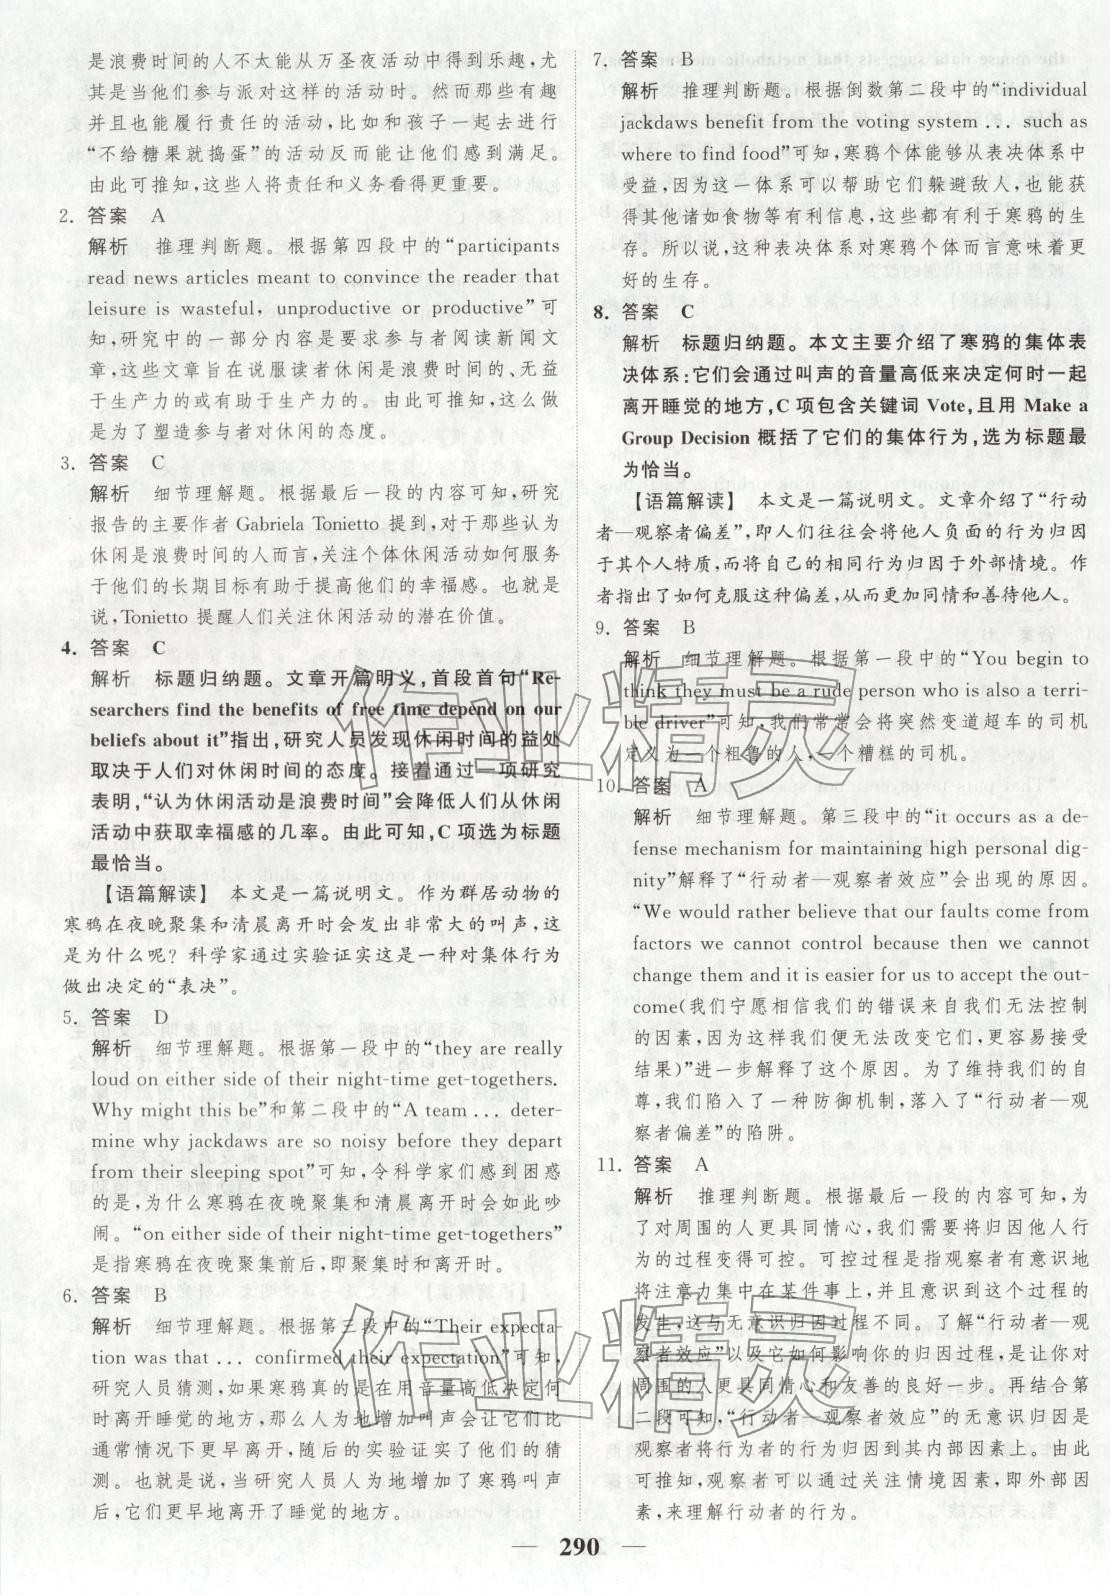 是浪费时间的人不太能从万圣夜活动中得到乐趣，尤
其是当他们参与派对这样的活动时。然而那些有趣
并且也能履行责任的活动，比如和孩子一起去进行
“不给糖果就捣蛋”的活动反而能让他们感到满足。
由此可推知，这些人将责任和义务看得更重要。
2. 答案 A
解析 推理判断题。根据第四段中的“participants
read news articles meant to convince the reader that
leisure is wasteful, unproductive or productive”可
知，研究中的一部分内容是要求参与者阅读新闻文
章，这些文章旨在说服读者休闲是浪费时间的、无益
于生产力的或有助于生产力的。由此可推知，这么做
是为了塑造参与者对休闲的态度。
3. 答案 C
解析 细节理解题。根据最后一段的内容可知，研究
报告的主要作者 Gabriela Tonietto 提到，对于那些认为
休闲是浪费时间的人而言，关注个体休闲活动如何服务
于他们的长期目标有助于提高他们的幸福感。也就是
说，Tonietto 提醒人们关注休闲活动的潜在价值。
4. 答案 C
解析 标题归纳题。文章开篇明义，首段首句“Re-
searchers find the benefits of free time depend on our
beliefs about it”指出，研究人员发现休闲时间的益处
取决于人们对休闲时间的态度。接着通过一项研究
表明，“认为休闲活动是浪费时间”会降低人们从休闲
活动中获取幸福感的几率。由此可知，C 项选为标题
最恰当。
【语篇解读】 本文是一篇说明文。作为群居动物的
寒鸦在夜晚聚集和清晨离开时会发出非常大的叫声，这
是为什么呢？科学家通过实验证实这是一种对集体行为
做出决定的“表决”。
5. 答案 D
解析 细节理解题。根据第一段中的“they are really
loud on either side of their night-time get-togethers.
Why might this be”和第二段中的“A team ... deter-
mine why jackdaws are so noisy before they depart
from their sleeping spot”可知，令科学家们感到困惑
的是，为什么寒鸦在夜晚聚集和清晨离开时会如此吵
闹。“on either side of their night-time get-togethers”
是指寒鸦在夜晚聚集前后，即聚集时和离开时。
6. 答案 B
解析 细节理解题。根据第三段中的“Their expecta-
tion was that ... confirmed their expectation”可知，
研究人员猜测，如果寒鸦真的是在用音量高低决定何
时离开睡觉的地方，那么人为地增加叫声会让它们比
通常情况下更早离开，随后的实验证实了他们的猜
测。也就是说，当研究人员人为地增加了寒鸦叫声
后，它们更早地离开了睡觉的地方。
7. 答案 B
解析 推理判断题。根据倒数第二段中的“individual
jackdaws benefit from the voting system ... such as
where to find food”可知，寒鸦个体能够从表决体系中
受益，因为这一体系可以帮助它们躲避敌人，也能获
得其他诸如食物等有利信息，这些都有利于寒鸦的生
存。所以说，这种表决体系对寒鸦个体而言意味着更
好的生存。
8. 答案 C
解析 标题归纳题。本文主要介绍了寒鸦的集体表
决体系：它们会通过叫声的音量高低来决定何时一起
离开睡觉的地方，C 项包含关键词 Vote，且用 Make a
Group Decision 概括了它们的集体行为，选为标题最
为恰当。
【语篇解读】 本文是一篇说明文。文章介绍了“行动
者—观察者偏差”，即人们往往会将他人负面的行为归因
于其个人特质，而将自己的相同行为归因于外部情境。作
者指出了如何克服这种偏差，从而更加同情和善待他人。
9. 答案 B
解析 细节理解题。根据第一段中的“You begin to
think they must be a rude person who is also a terri-
ble driver”可知，我们常常会将突然变道超车的司机
定义为一个粗鲁的人，一个糟糕的司机。
10. 答案 A
解析 细节理解题。第三段中的“it occurs as a de-
fense mechanism for maintaining high personal dig-
nity”解释了“行动者—观察者效应”会出现的原因。
“We would rather believe that our faults come from
factors we cannot control because then we cannot
change them and it is easier for us to accept the out-
come(我们宁愿相信我们的错误来自我们无法控制
的因素，因为这样我们便无法改变它们，更容易接受
结果)”进一步解释了这个原因。为了维持我们的自
尊，我们陷入了一种防御机制，落入了“行动者—观
察者偏差”的陷阱。
11. 答案 A
解析 推理判断题。根据最后一段的内容可知，为
了对周围的人更具同情心，我们需要将归因他人行为
的过程变得可控。可控过程是指观察者有意识地
将注意力集中在某件事上，并意识到这个过程的
发生，这与无意识归因过程不同。了解“行动者—观
察者效应”以及它如何影响你的归因过程，是让你对
周围的人更具同情心和友善的良好一步。再结合第
二段可知，“行动者—观察者效应”的无意识归因是
观察者将行动者的行为归因到其内部因素上。由此
可推知，观察者可以通过关注情境因素，即外部因
素，来理解行动者的行为。
— 290 —
作业精灵
作业精灵